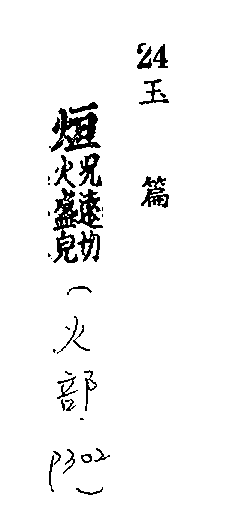 24
玉篇
烜 况遠切 火盛皃
(火部.
p302)